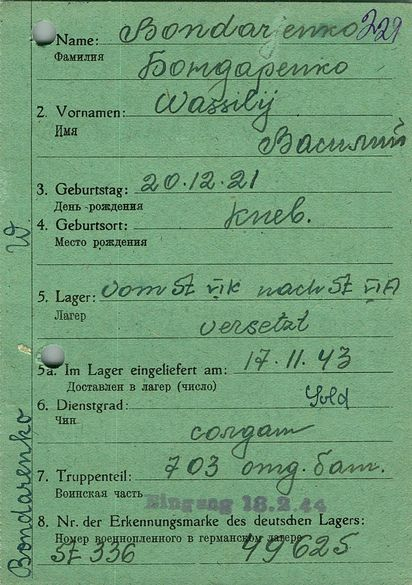 Name: Bondarjenko 229
Фамилия
Бондаренко
2. Vornamen: Wassilij
Имя
Василий
3. Geburtstag: 20.12.21
День рождения
4. Geburtsort: Киев.
Место рождения
5. Lager: vom St VIK nach St VIA
Лагер
versetzt
5a. Im Lager eingeliefert am: 17.11.43
Доставлен в лагер (число)
6. Dienstgrad: Sold
Чин
солдат
7. Truppenteil: 703 отд. бат.
Воинская часть
Eingang 18.2.44
8. Nr. der Erkennungsmarke des deutschen Lagers:
Номер военнопленного в германском лагере
St 336 49625
Bondarenko W